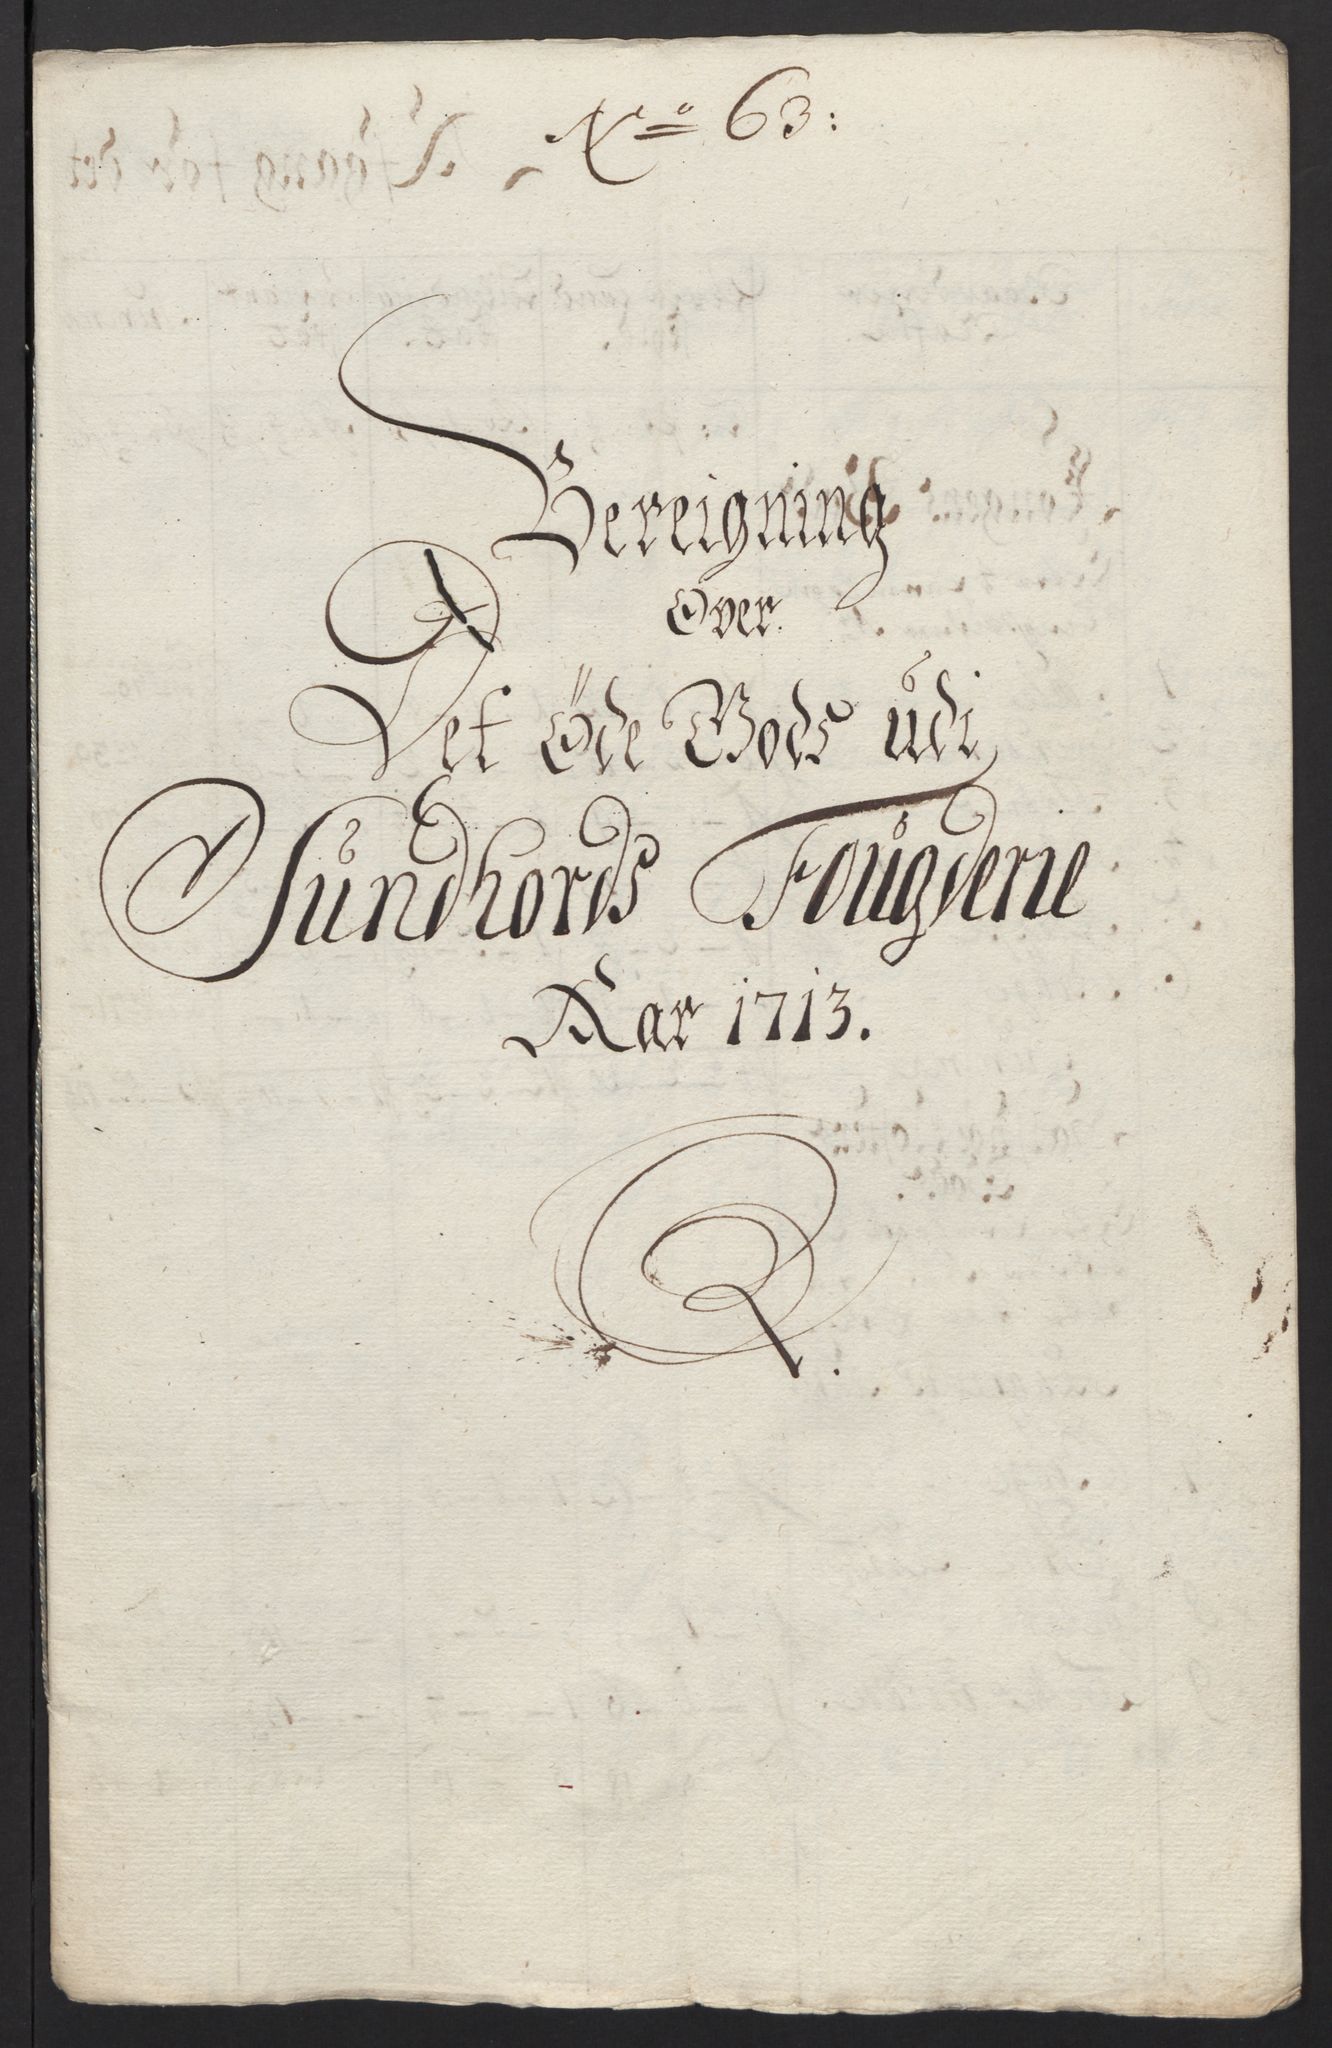 No 63:
Bereigning
Over
Det Öde Gods udi
Sundhords Fougderie
Aar 1713.